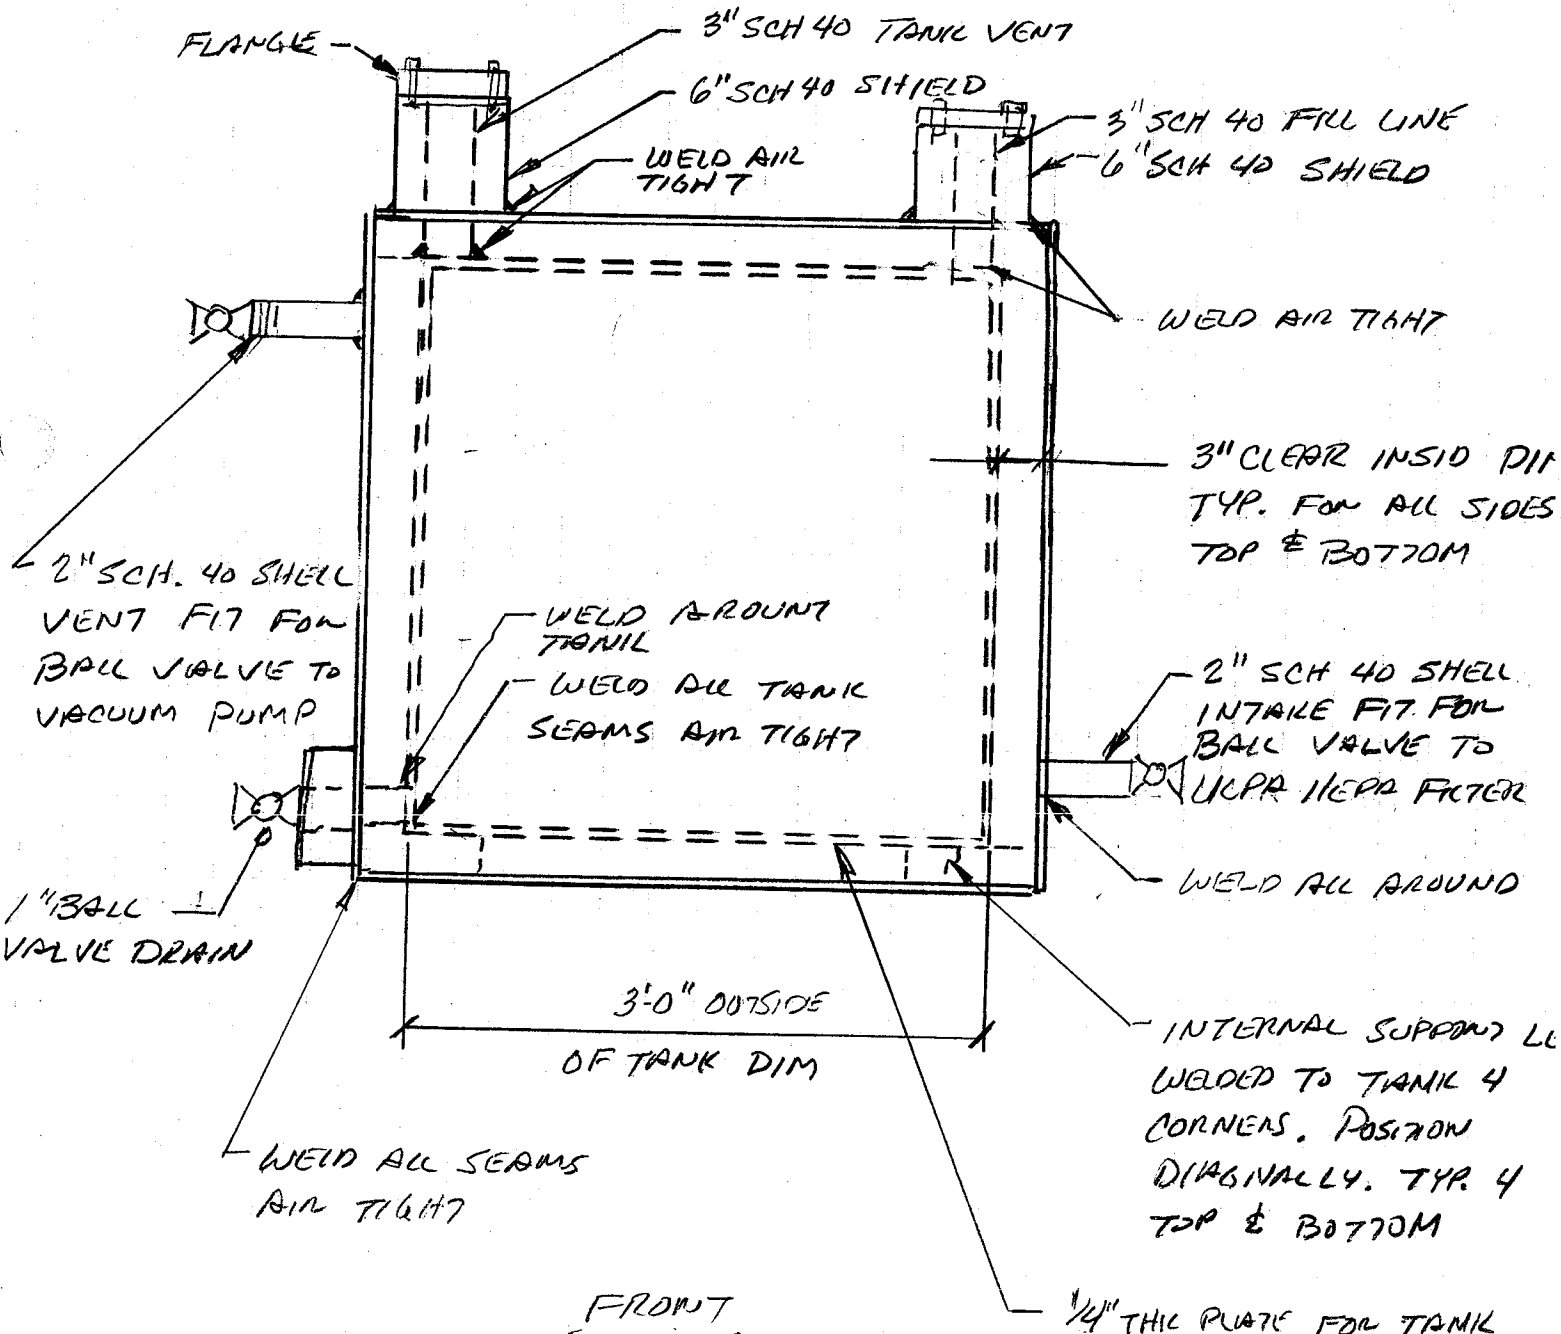 FLANGE
3" SCH 40 TANK VENT
6" SCH 40 SHIELD
WELD AIR
TIGHT
3" SCH 40 FILL LINE
6" SCH 40 SHIELD
WELD AIR TIGHT
3" CLEAR INSID DIM
TYP. FOR ALL SIDES
TOP & BOTTOM
2" SCH. 40 SHELL
VENT FIT FOR
BALL VALVE TO
VACUUM PUMP
WELD AROUNT
TANK
WELD ALL TANK
SEAMS AIR TIGHT
2" SCH 40 SHELL
INTAKE FIT FOR
BALL VALVE TO
HEPA FILTER
WELD ALL AROUND
1" BALL
VALVE DRAIN
3'-0" OUTSIDE
OF TANK DIM
INTERNAL SUPPORT LE
WELDED TO TANK 4
CORNERS. POSITION
DIAGNALLY. TYP. 4
TOP & BOTTOM
WELD ALL SEAMS
AIR TIGHT
FRONT
1/4" THK PLATE FOR TANK